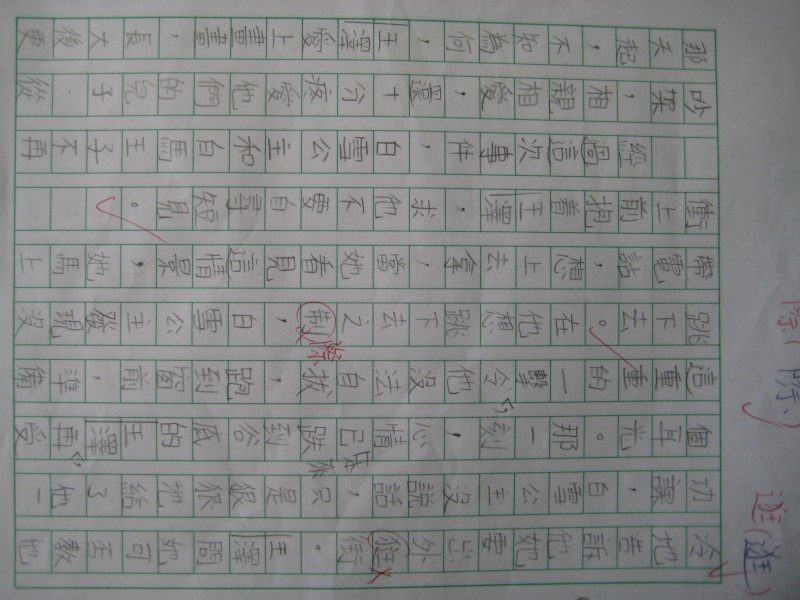 冷地告訴他她要出外逛街。王澤問她可否教他
功課，白雪公主沒說話，只是狠狠地給了他一
個耳光。那一刻，心情本來已跌到谷底的王澤再受
這重重的一擊令他沒法自拔，跑到窗前，準備
跳下去。在他想跳下去之制，白雪公主發現沒
際
帶電話，想上去拿，當她看見這情景，她馬上
衝上前抱着王澤，求他不要自尋短見。
經過這次事件，白雪公主和白馬王子不再
吵架，相親相愛，還十分疼愛他們的兒子．從
那天起，不知為何，王澤愛上畫畫，長大後更